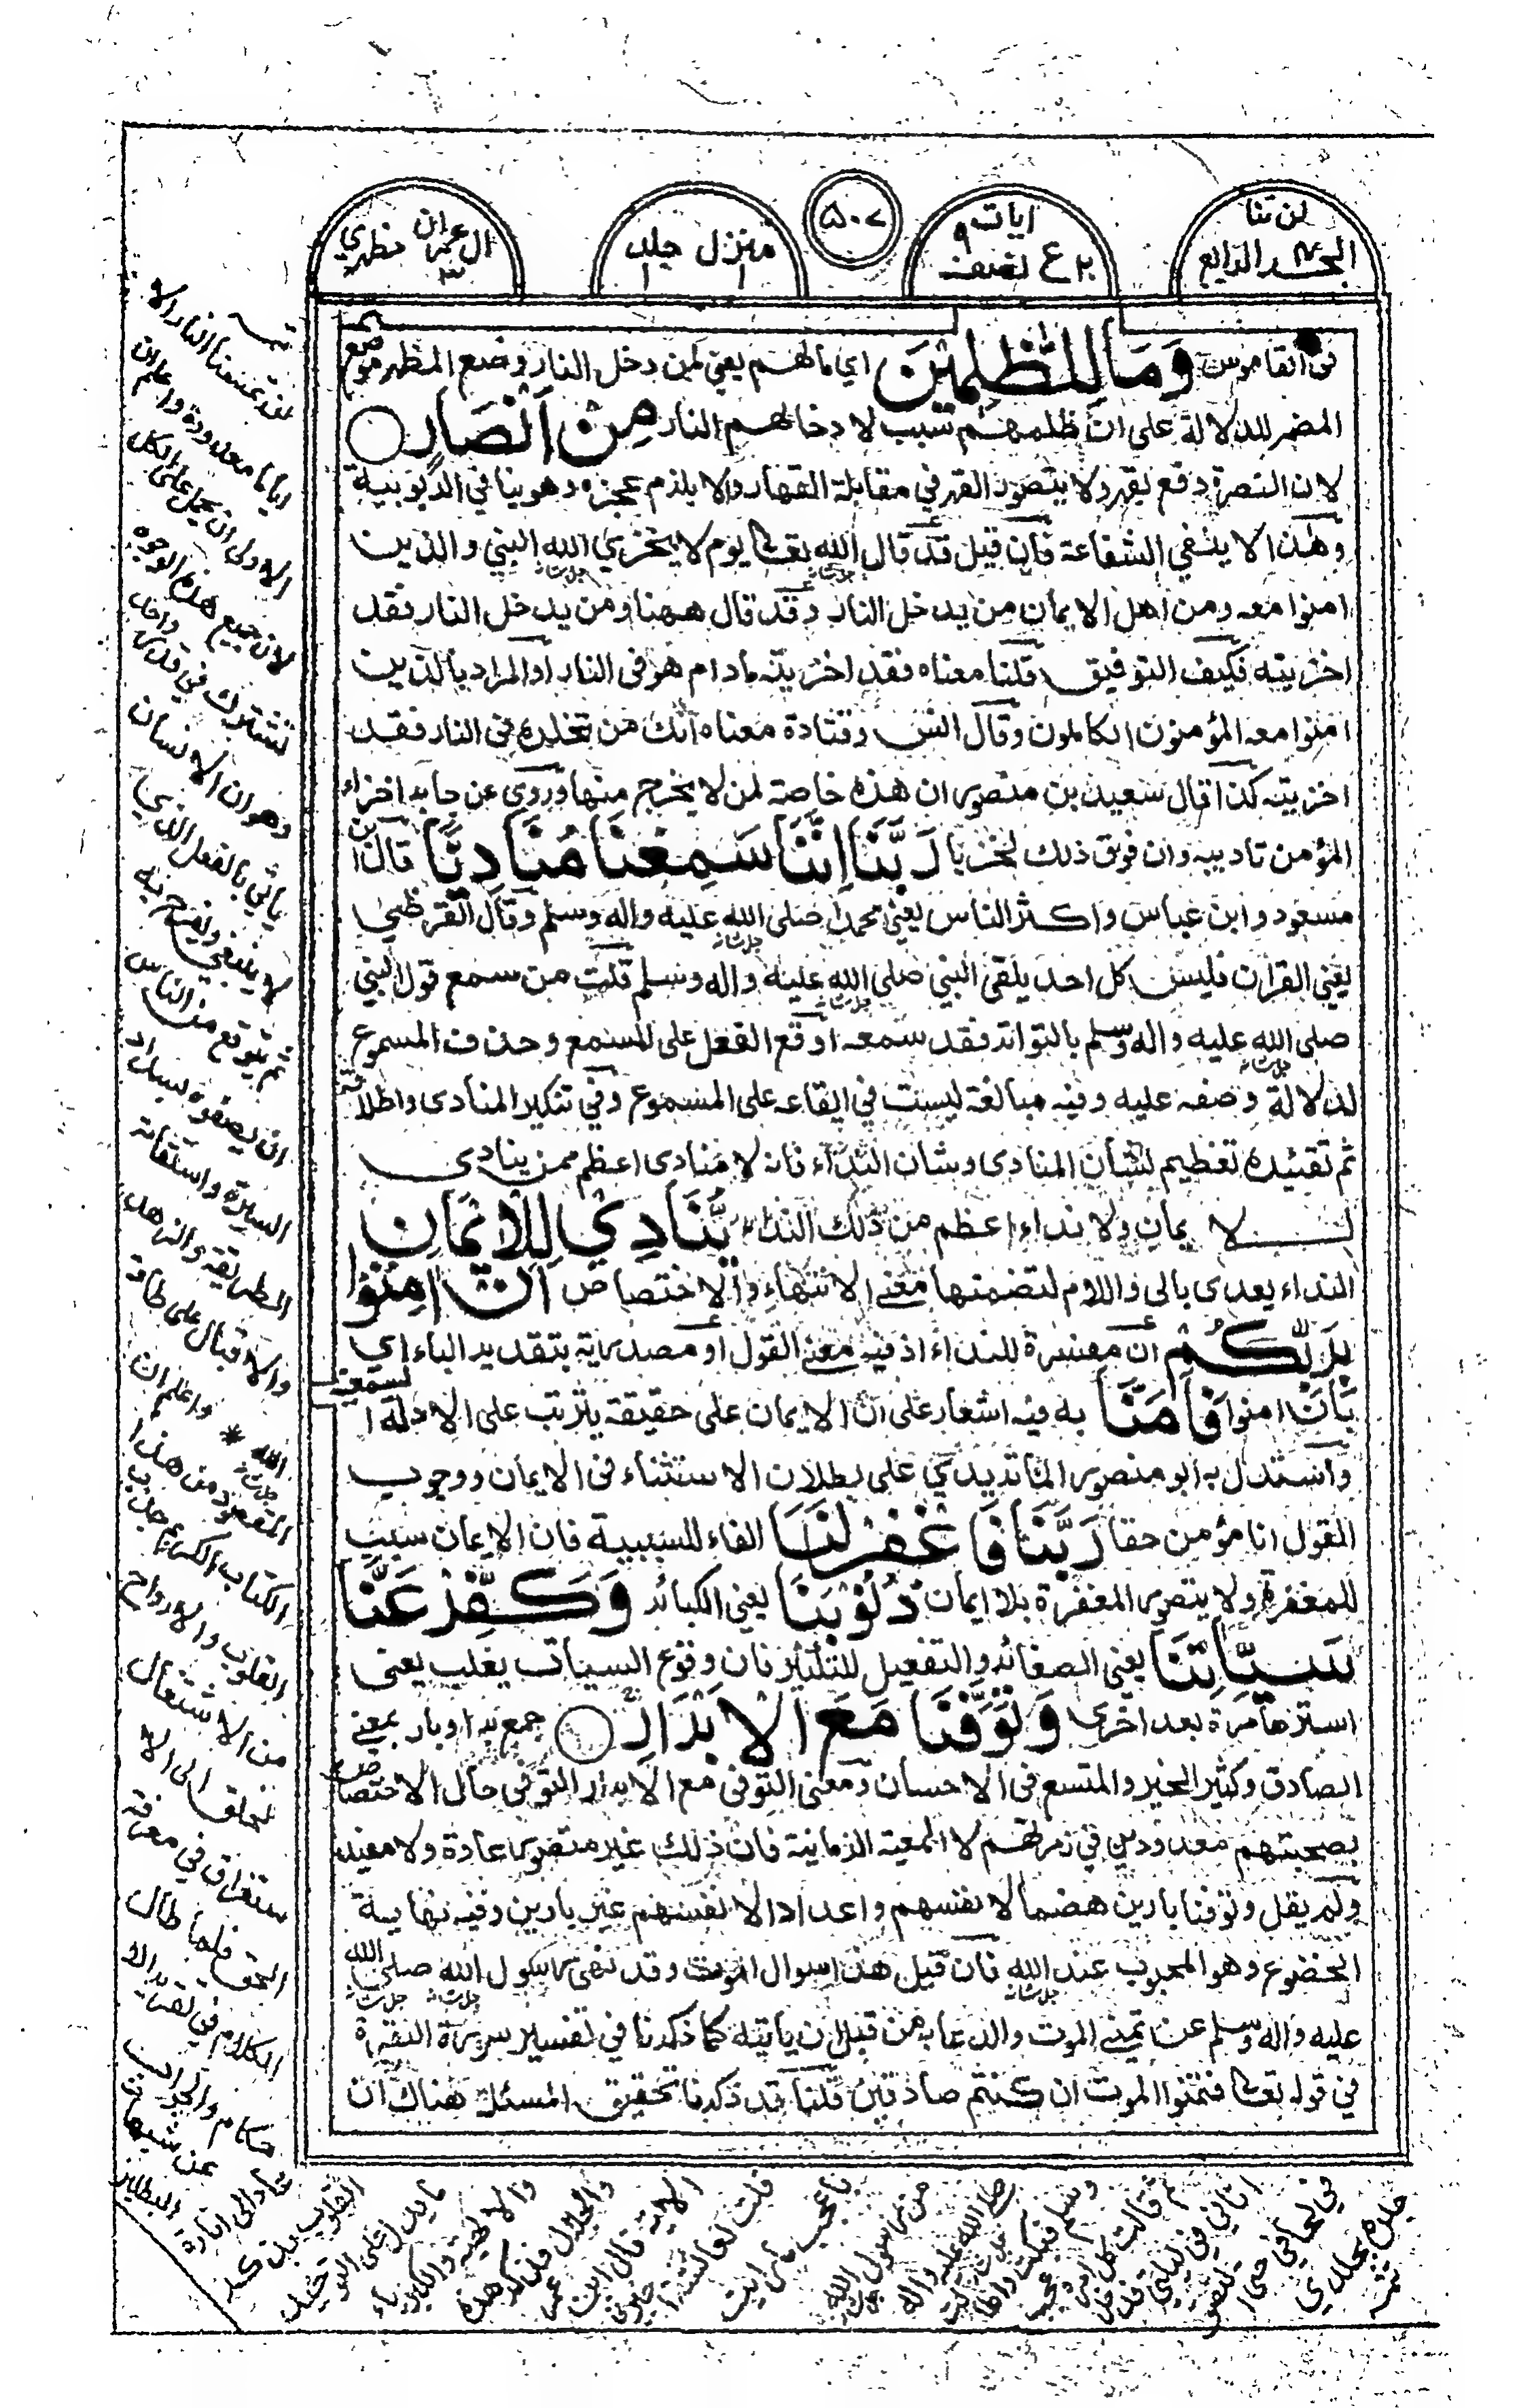 لن تنا
الجزء الرابع
ايات ٩
٢٠ ع نصف
٥٠٧
منزل جلد
١ ١
ال عمران مظهري
٣
القاموس وَمَا لِلظّٰلِمِيْنَ اي مالهم يعني لمن دخل النار وضع المظهر موضع
المضمر للدلالة على ان ظلمهم سبب لادخالهم النار مِنْ اَنْصَارٍ ○
لان النصرة دفع بقهر ولا يتصور القهر في مقابلة القهار والا يلزم عجزه وهو ينافي الربوبية
وهذا لا ينفي الشفاعة فان قيل قد قال الله تعالى يوم لا يخزي الله النبي والذين
امنوا معه ومن اهل الايمان من يدخل النار وقد قال ههنا ومن يدخل النار فقد
اخزيته فكيف التوفيق قلنا معناه فقد اخزيته مادام هو في النار او المراد بالذين
امنوا معه المؤمنون الكاملون وقال انس وقتادة معناه انك من تخلده في النار فقد
اخزيته كذا قال سعيد بن منصور ان هذه خاصة لمن لا يخرج منها وروي عن جابر اخزاء
المؤمن تاديبه وان فوق ذلك لخزيا رَبَّنَا اِنَّنَا سَمِعْنَا مُنَادِيًا قال ابن
مسعود وابن عباس واكثر الناس يعني محمدا صلى الله عليه واله وسلم وقال القرظي
يعني القران فليس كل احد يلقى النبي صلى الله عليه واله وسلم قلت من سمع قول النبي
صلى الله عليه واله وسلم بالتواتر فقد سمعه اوقع الفعل على المسمع وحذف المسموع
لدلالة وصفه عليه وفيه مبالغة ليست في ايقاعه على المسموع وفي تنكير المنادى واطلاقه
ثم تقييده تعظيم لشان المنادى وشان النداء فانه لا منادى اعظم ممن ينادى
للايمان ولا نداء اعظم من ذلك النداء يُّنَادِيْ لِلْاِيْمَانِ
النداء يعدى بالى واللام لتضمنها معنى الانتهاء والاختصاص اَنْ اٰمِنُوْا
بِرَبِّكُمْ ان مفسرة للنداء اذ فيه معنى القول او مصدرية بتقدير الباء اي
بان امنوا فَاٰمَنَّا به فيه اشعار على ان الايمان على حقيقة يترتب على الادلة السمعية
واستدل به ابو منصور الماتريدي على بطلان الاستثناء في الايمان ووجوب
القول انا مؤمن حقا رَبَّنَا فَاغْفِرْ لَنَا الفاء للسببية فان الايمان سبب
للمغفرة ولا يتصور المغفرة بلا ايمان ذُنُوْبَنَا يعني الكبائر وَكَفِّرْ عَنَّا
سَيِّاٰتِنَا يعني الصغائر والتفعيل للتكثير فان وقوع السيات يغلب يعني
استرها مرة بعد اخرى وَتَوَفَّنَا مَعَ الْاَبْرَارِ ○ جمع بر او بار بمعنى
الصادق وكثير الخير والمتسع في الاحسان ومعنى التوفي مع الابرار التوفي حال الاختصاص
بصحبتهم معدودين في زمرتهم لا المعية الزمانية فان ذلك غير متصور عادة ولا مفيد
ولم يقل وتوفنا بارين هضما لانفسهم واعدادا لانفسهم غير بارين وفيه نهاية
الخضوع وهو المحبوب عند الله فان قيل هذا سوال الموت وقد نهى رسول الله صلى الله
عليه واله وسلم عن تمني الموت والدعا به من قبل ان ياتيه كما ذكرنا في تفسير سورة البقرة
في قوله تعالى فتمنوا الموت ان كنتم صادقين قلنا قد ذكرنا تحقيق المسئلة هناك ان
اياما معدودة واعلم ان
الاولى ان يحمل على الكل
لان جميع هذه الوجوه
تشترك في قدر واحد
وهو ان الانسان
ياتي بالفعل الذي
لا ينبغي ويفرح به
ثم يتوقع من الناس
ان يصفوه بسداد
السيرة واستقامة
الطريقة والزهد
والاقبال على طاعة
الله * واعلم ان
المقصود من هذا
الكتاب الكريم جذب
القلوب والارواح
من الاشتغال
بالخلق الى الا
ستغراق في معرفة
الحق فلما طال
الكلام في تقرير الا
حكام والجواب
عن شبهات